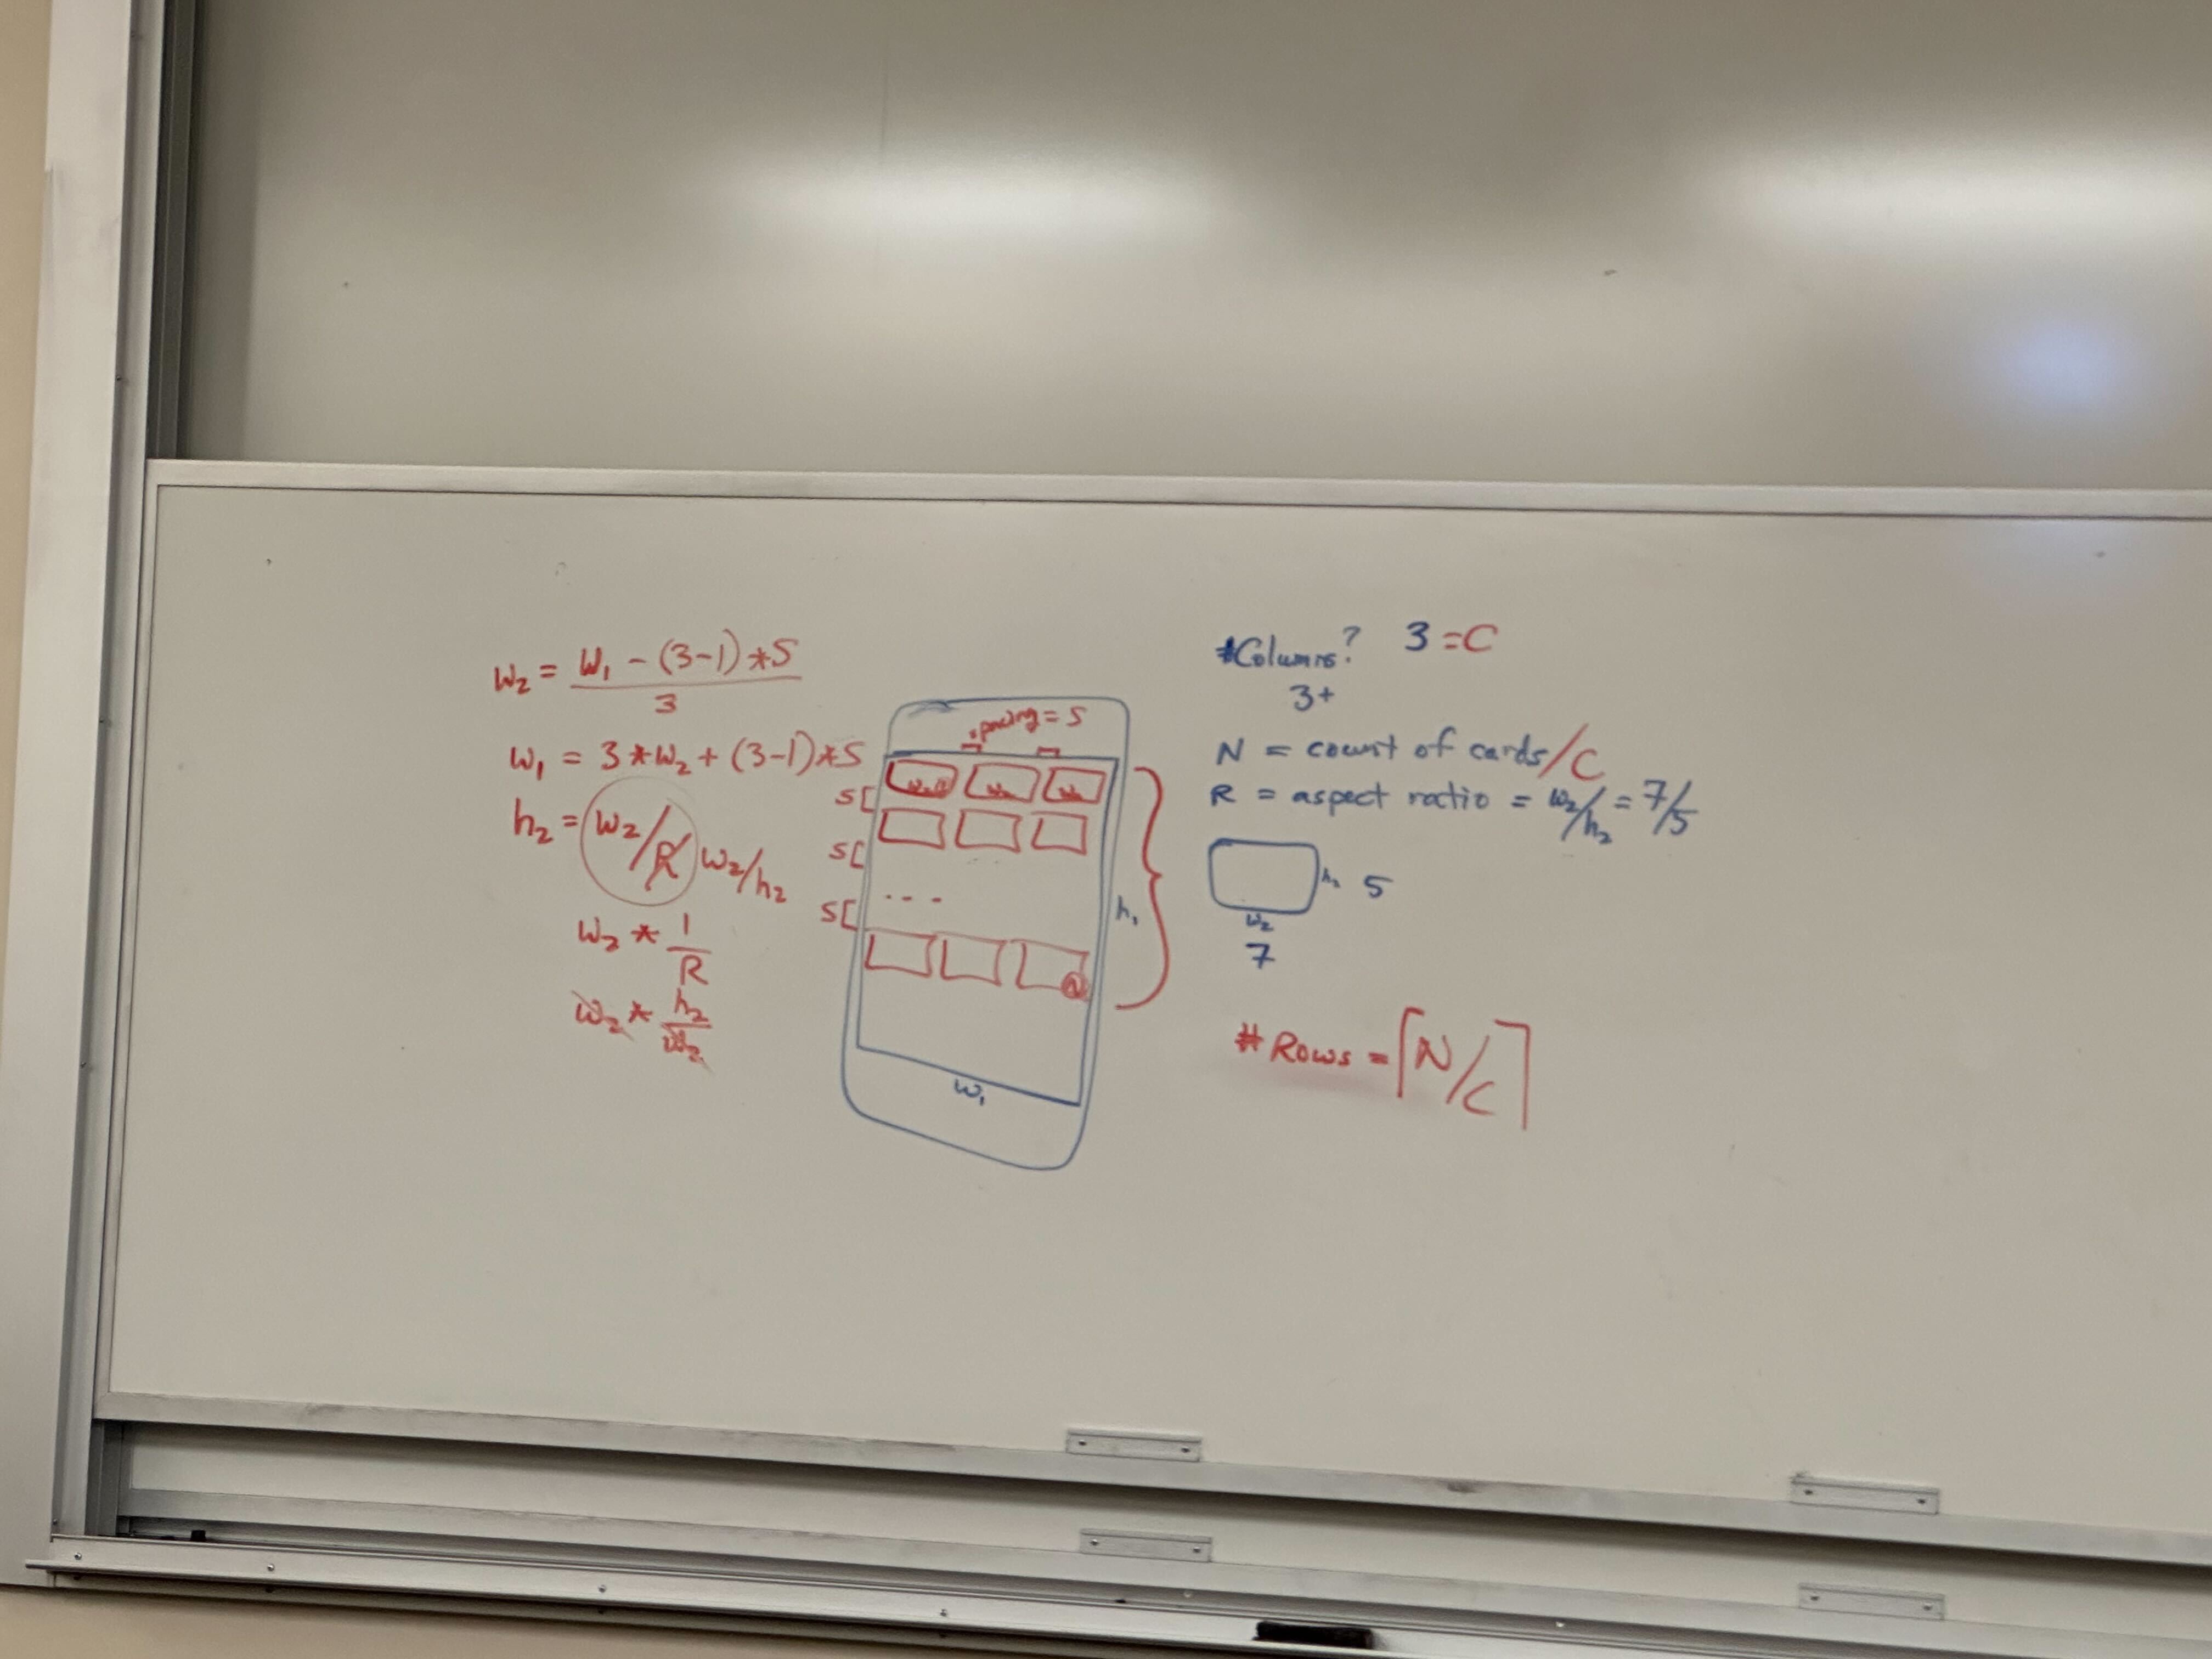 w₂ = (W₁ - (3-1)*S) / 3
w₁ = 3*w₂ + (3-1)*S
h₂ = w₂/R w₂/h₂
w₂ * 1/R
w₂ * h₂/w₂
spacing = S
w₂ w₂
S[
S[
S[
...
h₁
w₁
#Columns? 3 = C
3+
N = count of cards/C
R = aspect ratio = w₂/h₂ = 7/5
h₂ 5
w₂
7
# Rows = ⌈N/C⌉